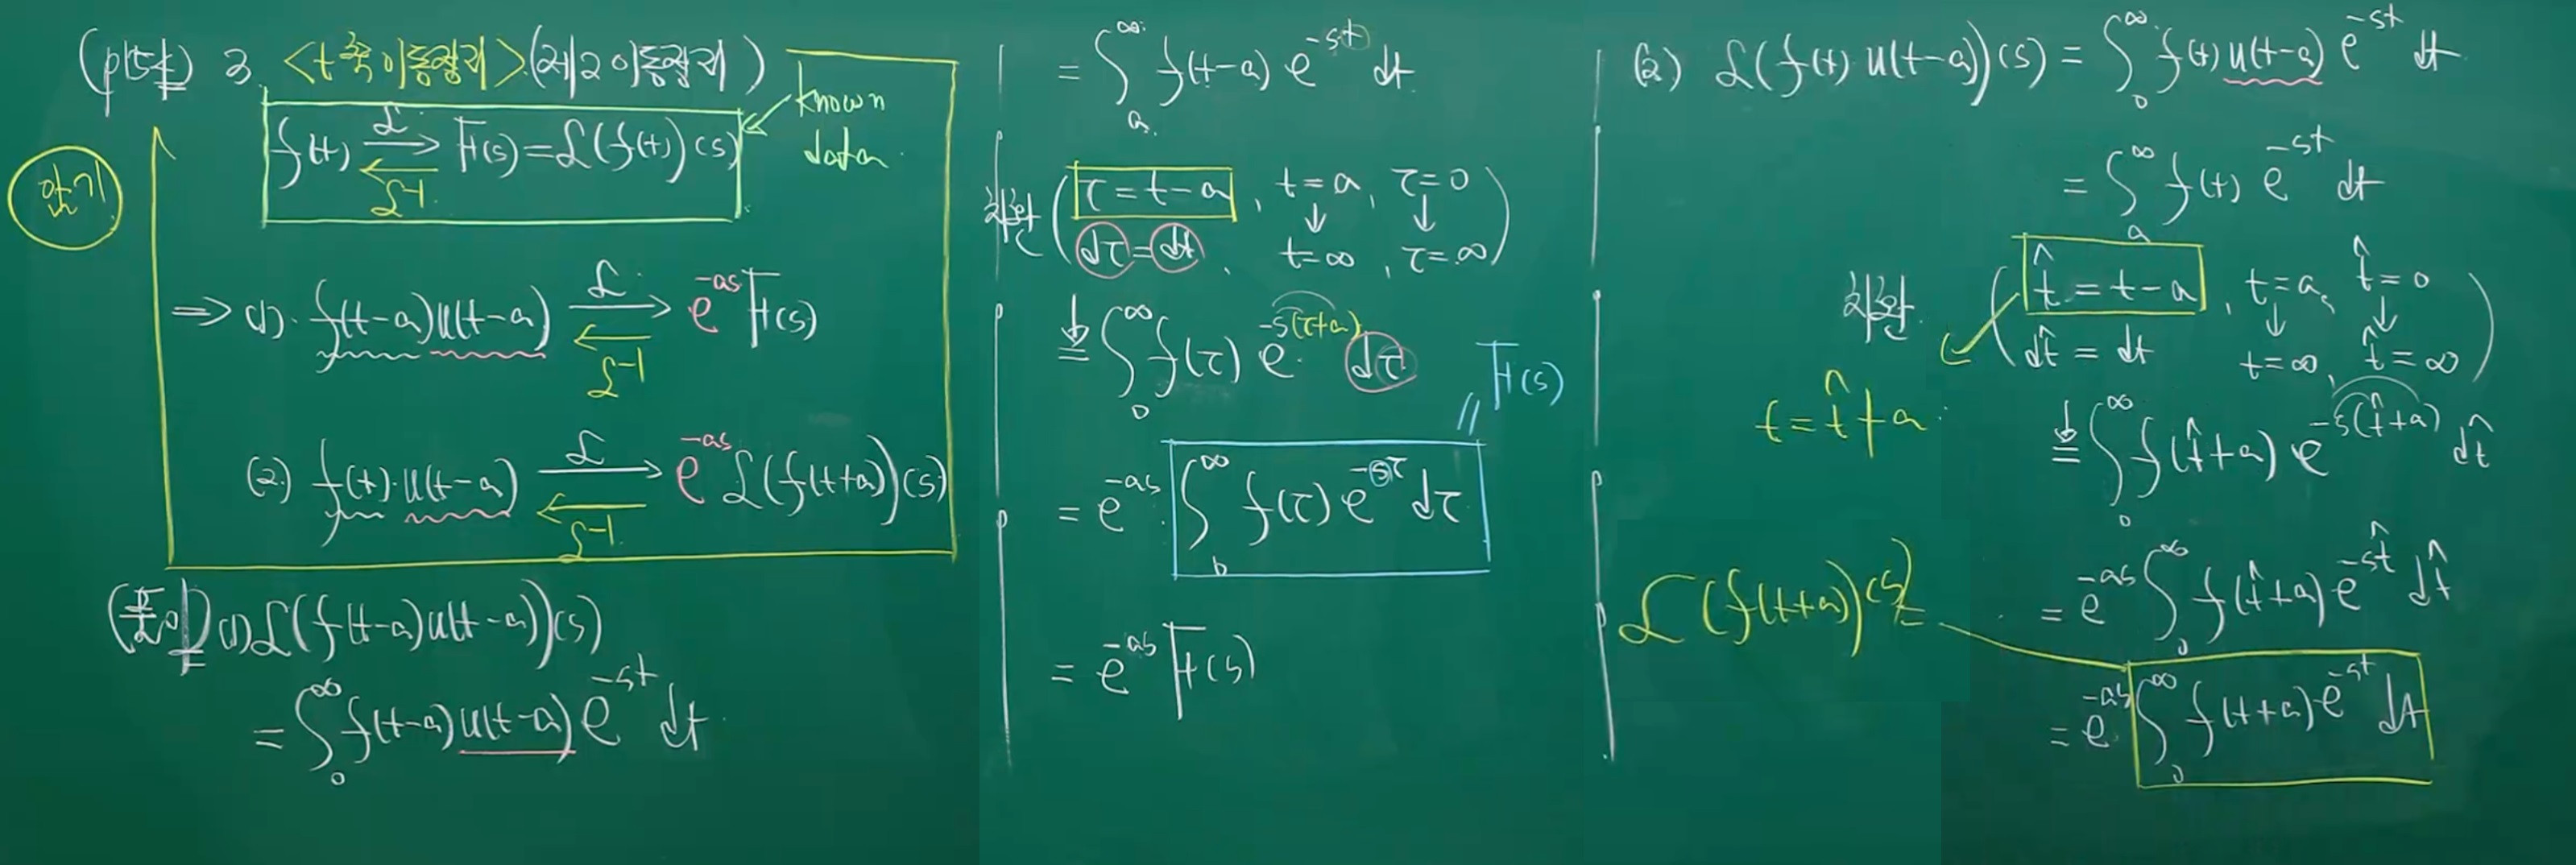 3. <t축이동정리>(제2이동정리)
f(t) ℒ→ ←ℒ⁻¹ F(s)=ℒ(f(t))(s)
known data
암기
⇒ (1). f(t-a)u(t-a) ℒ→ ←ℒ⁻¹ e^{-as}F(s)
(2.) f(t)·u(t-a) ℒ→ ←ℒ⁻¹ e^{-as}ℒ(f(t+a))(s)
(풀이) (1) ℒ(f(t-a)u(t-a))(s)
= ∫_0^∞ f(t-a)u(t-a)e^{-st} dt
= ∫_a^∞ f(t-a) e^{-st} dt
치환 ( τ = t-a , t=a, τ=0
dτ = dt , t=∞, τ=∞ )
= ∫_0^∞ f(τ) e^{-s(τ+a)} dτ
= e^{-as} ∫_0^∞ f(τ) e^{-sτ} dτ = F(s)
= e^{-as} F(s)
(2) ℒ(f(t) u(t-a))(s) = ∫_0^∞ f(t) u(t-a) e^{-st} dt
= ∫_a^∞ f(t) e^{-st} dt
치환 ( t̂ = t-a , t=a, t̂=0
dt̂ = dt t=∞, t̂=∞ )
t = t̂+a
= ∫_0^∞ f(t̂+a) e^{-s(t̂+a)} dt̂
= e^{-as} ∫_0^∞ f(t̂+a) e^{-st̂} dt̂
ℒ(f(t+a))(s) =
= e^{-as} ∫_0^∞ f(t+a) e^{-st} dt